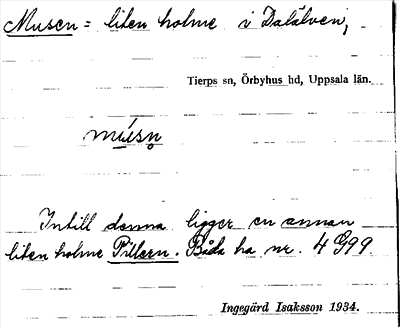 Musen = liten holme i Dalälven,
Tierps sn, Örbyhus hd, Uppsala län.
músn̥
Intill denna ligger en annan
liten holme Pillern. Båda ha nr. 4 G99
Ingegärd Isaksson 1934.